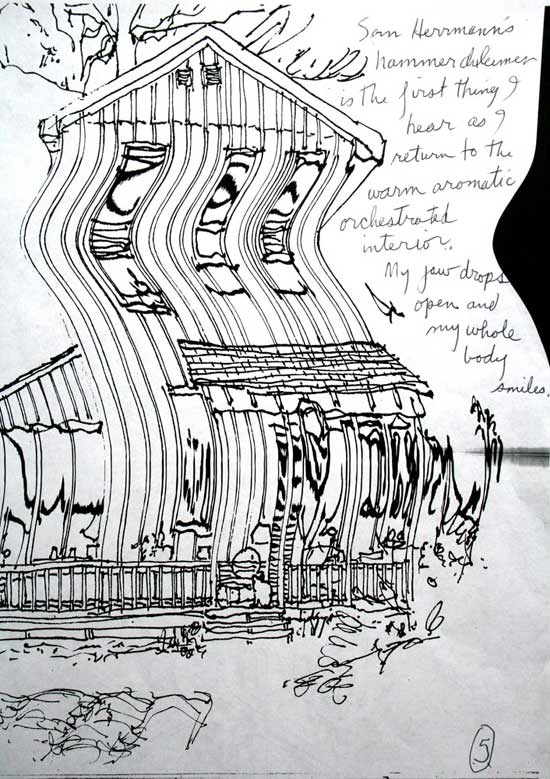 Sam Herrmann's
hammer dulcimer
is the first thing I
hear as I
return to the
warm aromatic
orchestrated
interior.
My jaw drops
open and
my whole
body
smiles.
5